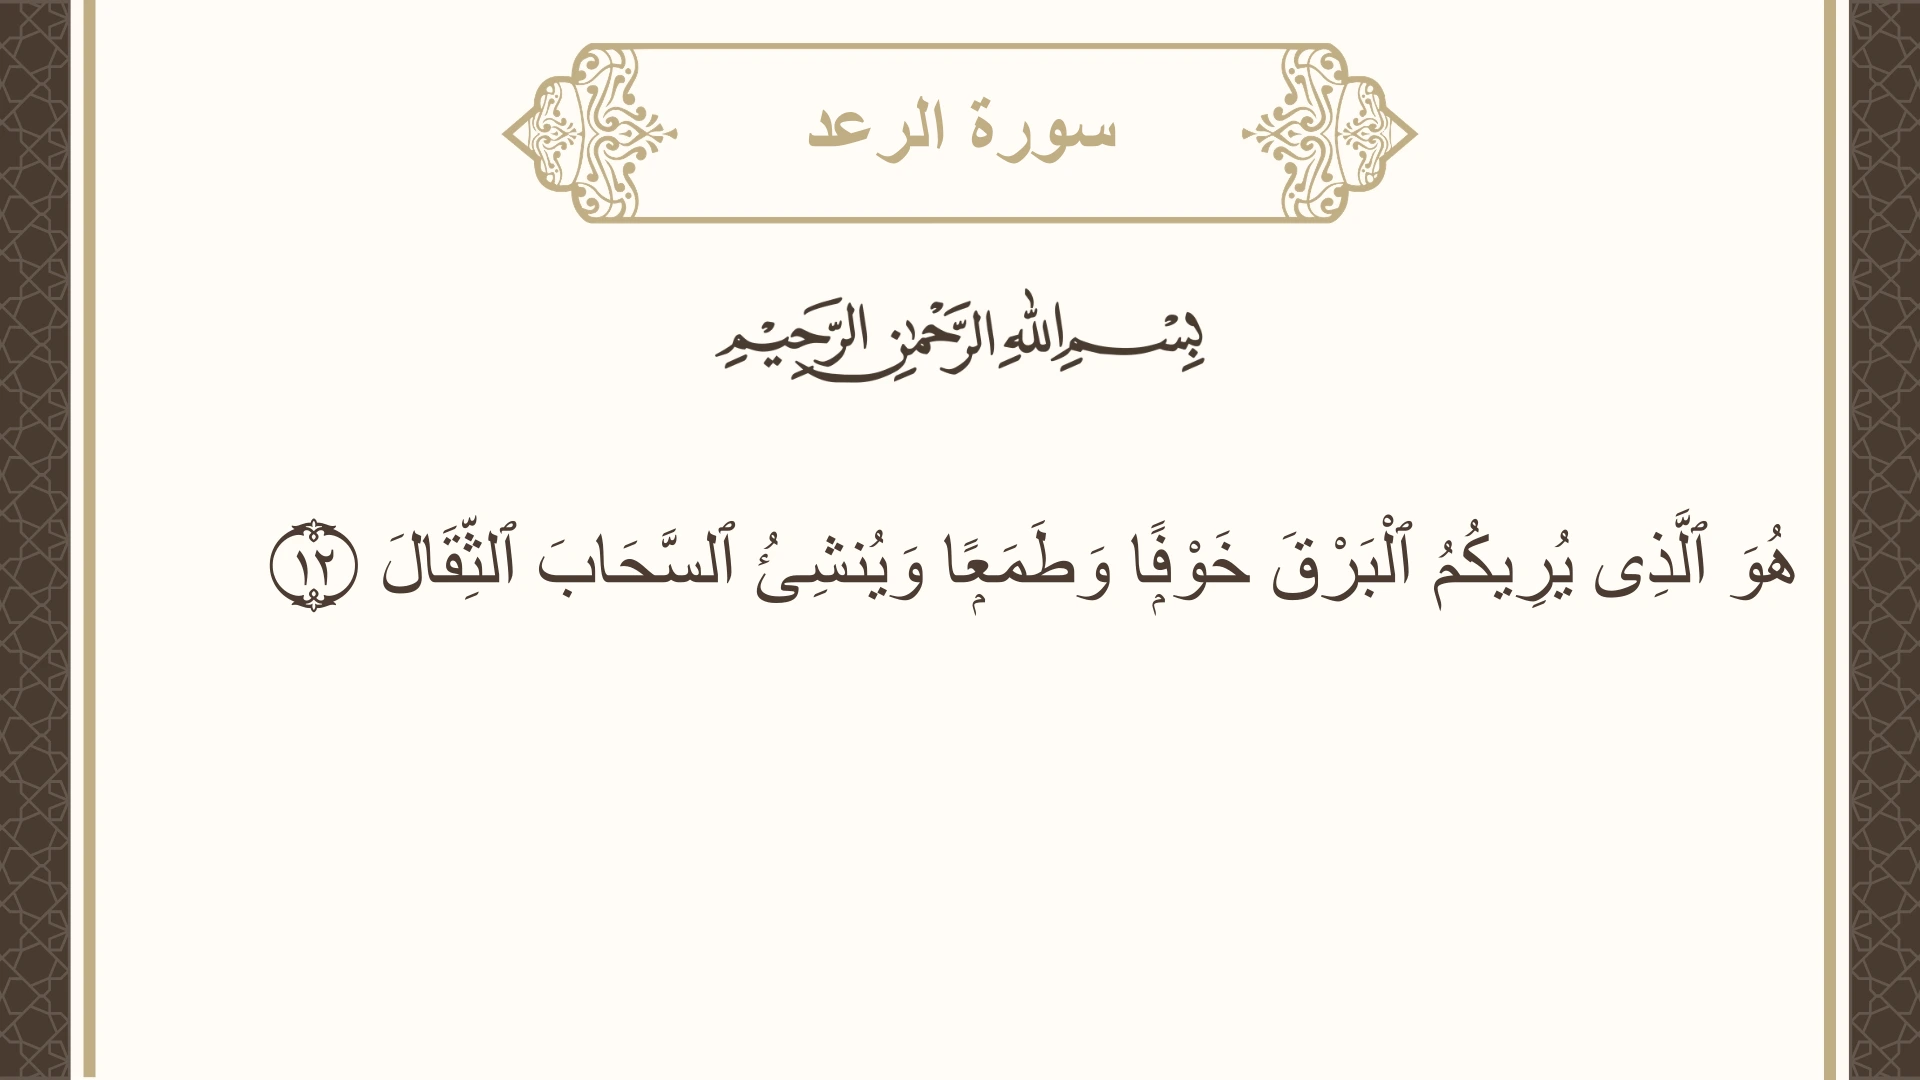 سورة الرعد
بِسْمِ اللهِ الرَّحْمٰنِ الرَّحِيْمِ
هُوَ ٱلَّذِى يُرِيكُمُ ٱلْبَرْقَ خَوْفًۭا وَطَمَعًۭا وَيُنشِئُ ٱلسَّحَابَ ٱلثِّقَالَ ١٢